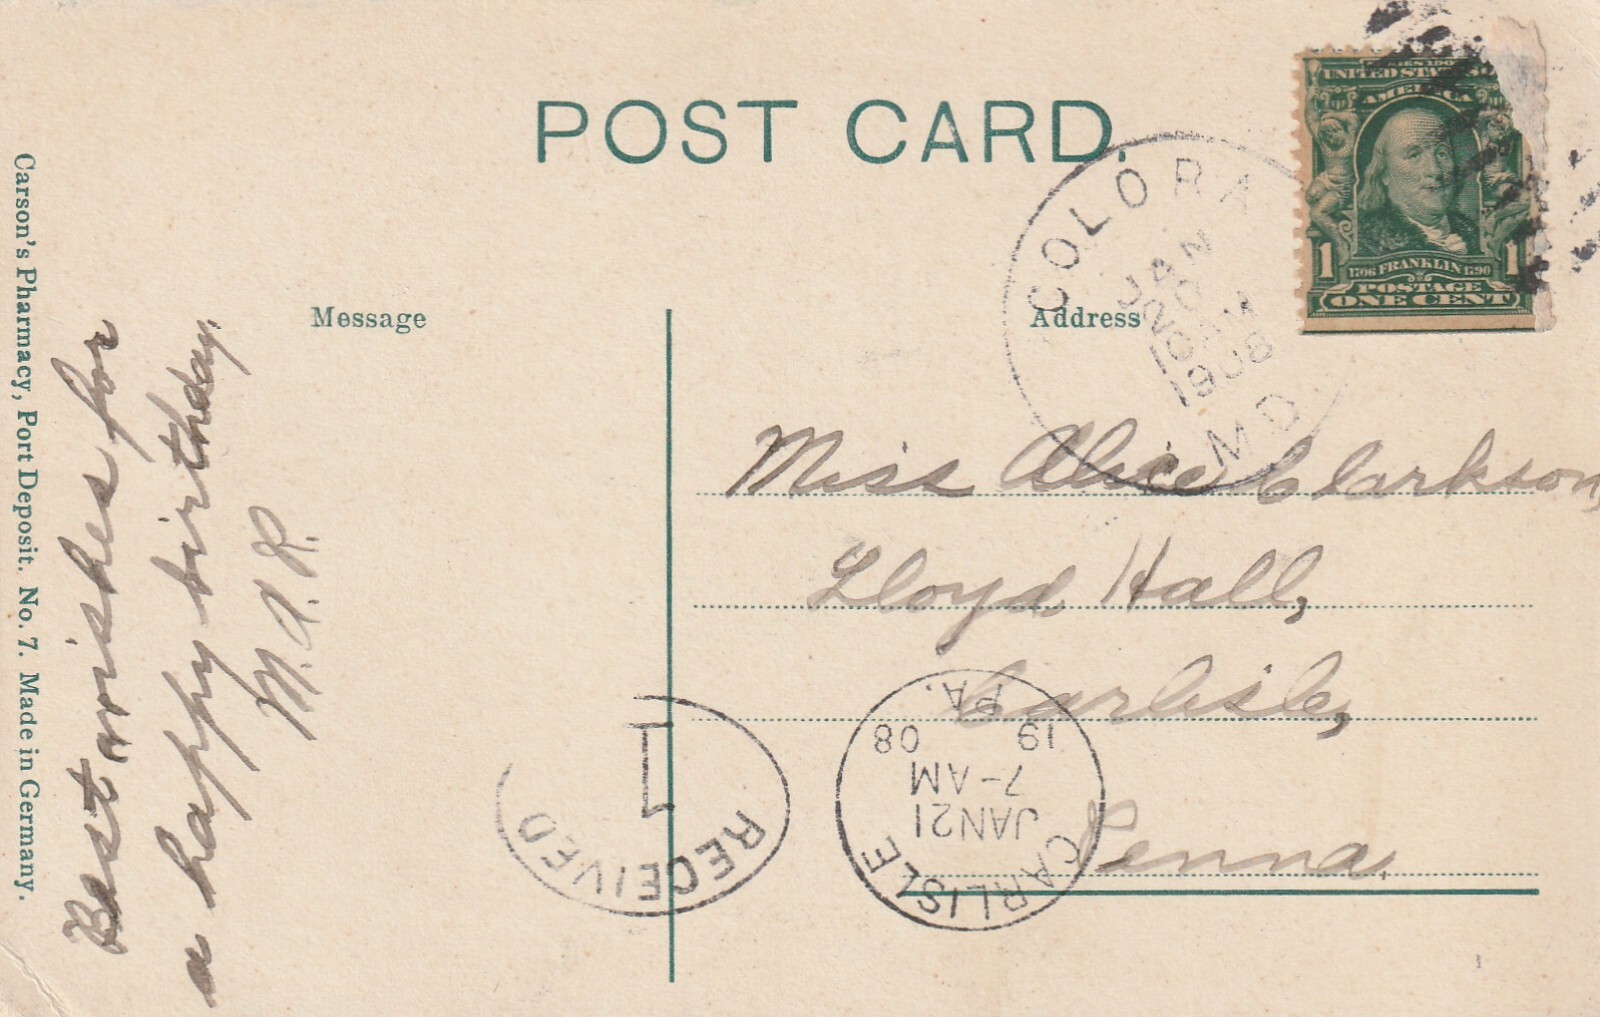 POST CARD.
Carson's Pharmacy, Port Deposit. No. 7. Made in Germany.
Message
Address
Best wishes for
a happy birthday.
M.A.R.
COLORA
JAN
20
10AM
1908
MD
UNITED STATES OF
AMERICA
1 1
1706 FRANKLIN 1790
POSTAGE
ONE CENT
Miss Alice Clarkson,
Lloyd Hall,
Carlisle,
Penna.
RECEIVED
1
CARLISLE
JAN 21
7-AM
19 08
PA.